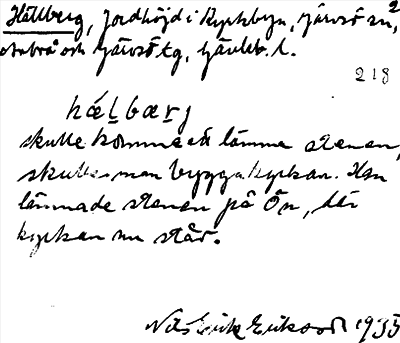 Hällberg, Jordhöjd i Kyrkbyn, Järvsö sn, 2
och Järvsö tg, Gävleb. l.
218
hälbærj
skulle komma och lämna stenen,
skulle man bygga kyrkan. Han
lämnade stenen på Ön, där
kyrkan nu står.
Nils Erik Eriksson 1935